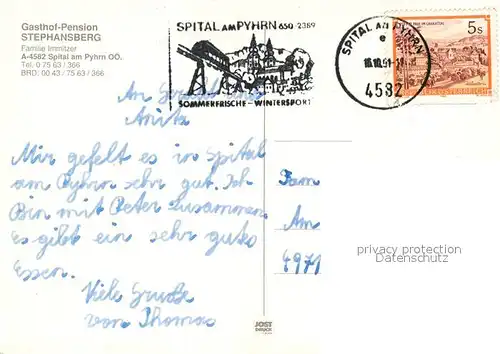 Gasthof-Pension
STEPHANSBERG
Familie Immitzer
A-4582 Spital am Pyhrn OÖ.
Tel. 0 75 63 / 366
BRD: 00 43 / 75 63 / 366
SPITAL AM PYHRN 650-2389
SOMMERFRISCHE - WINTERSPORT
SPITAL AM PYHRN
e
4582
5s
An
Anitz
Mir gefelt es in Spital
am Pyhrn sehr gut. Ich
Bin mit Peter zusammen
Es gibt ein sehr gutes
Essen.
Viele Grüße
von Thomas
Fam
Am
4971
privacy protection
Datenschutz
JOST
DRUCK